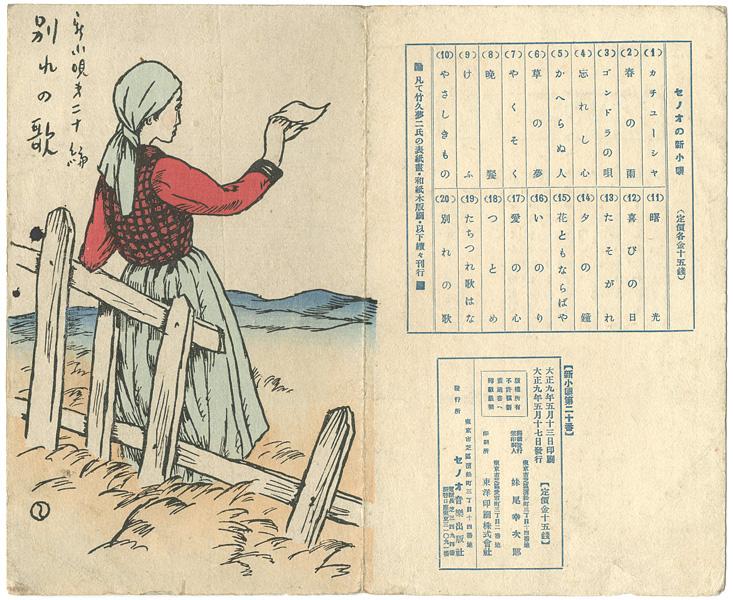 新小唄才二十編
別れの歌
セノオの新小唄 (定價各金十五錢)
(1) カチユーシヤ
(2) 春の雨
(3) ゴンドラの唄
(4) 忘れし心
(5) かへらぬ人
(6) 草の夢
(7) やくそく
(8) 晩鐘
(9) けふ
(10) やさしきもの
(11) 曙光
(12) 喜びの日
(13) たそがれ
(14) 夕の鐘
(15) 花ともならばや
(16) いのり
(17) 愛の心
(18) つとめ
(19) たちつれ歌はな
(20) 別れの歌
凡て竹久夢二氏の表紙畫・和紙木版刷・以下續々刊行
【新小唄第二十番】
大正九年五月十三日印刷
大正九年五月十七日發行
【定價金十五錢】
版權所有
不許複製
東京市芝區濱松町三丁目十四番地
妹尾幸次郎
印刷所
東洋印刷株式會社
發行所
東京市芝區濱松町三丁目十四番地
セノオ音樂出版社
電話長芝三四九四番
振替口座東京三一〇九一番